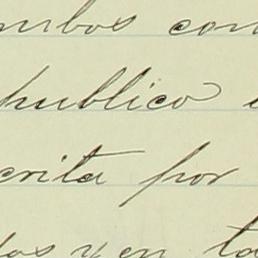 mbos con
publico
crita por
dos y en ta